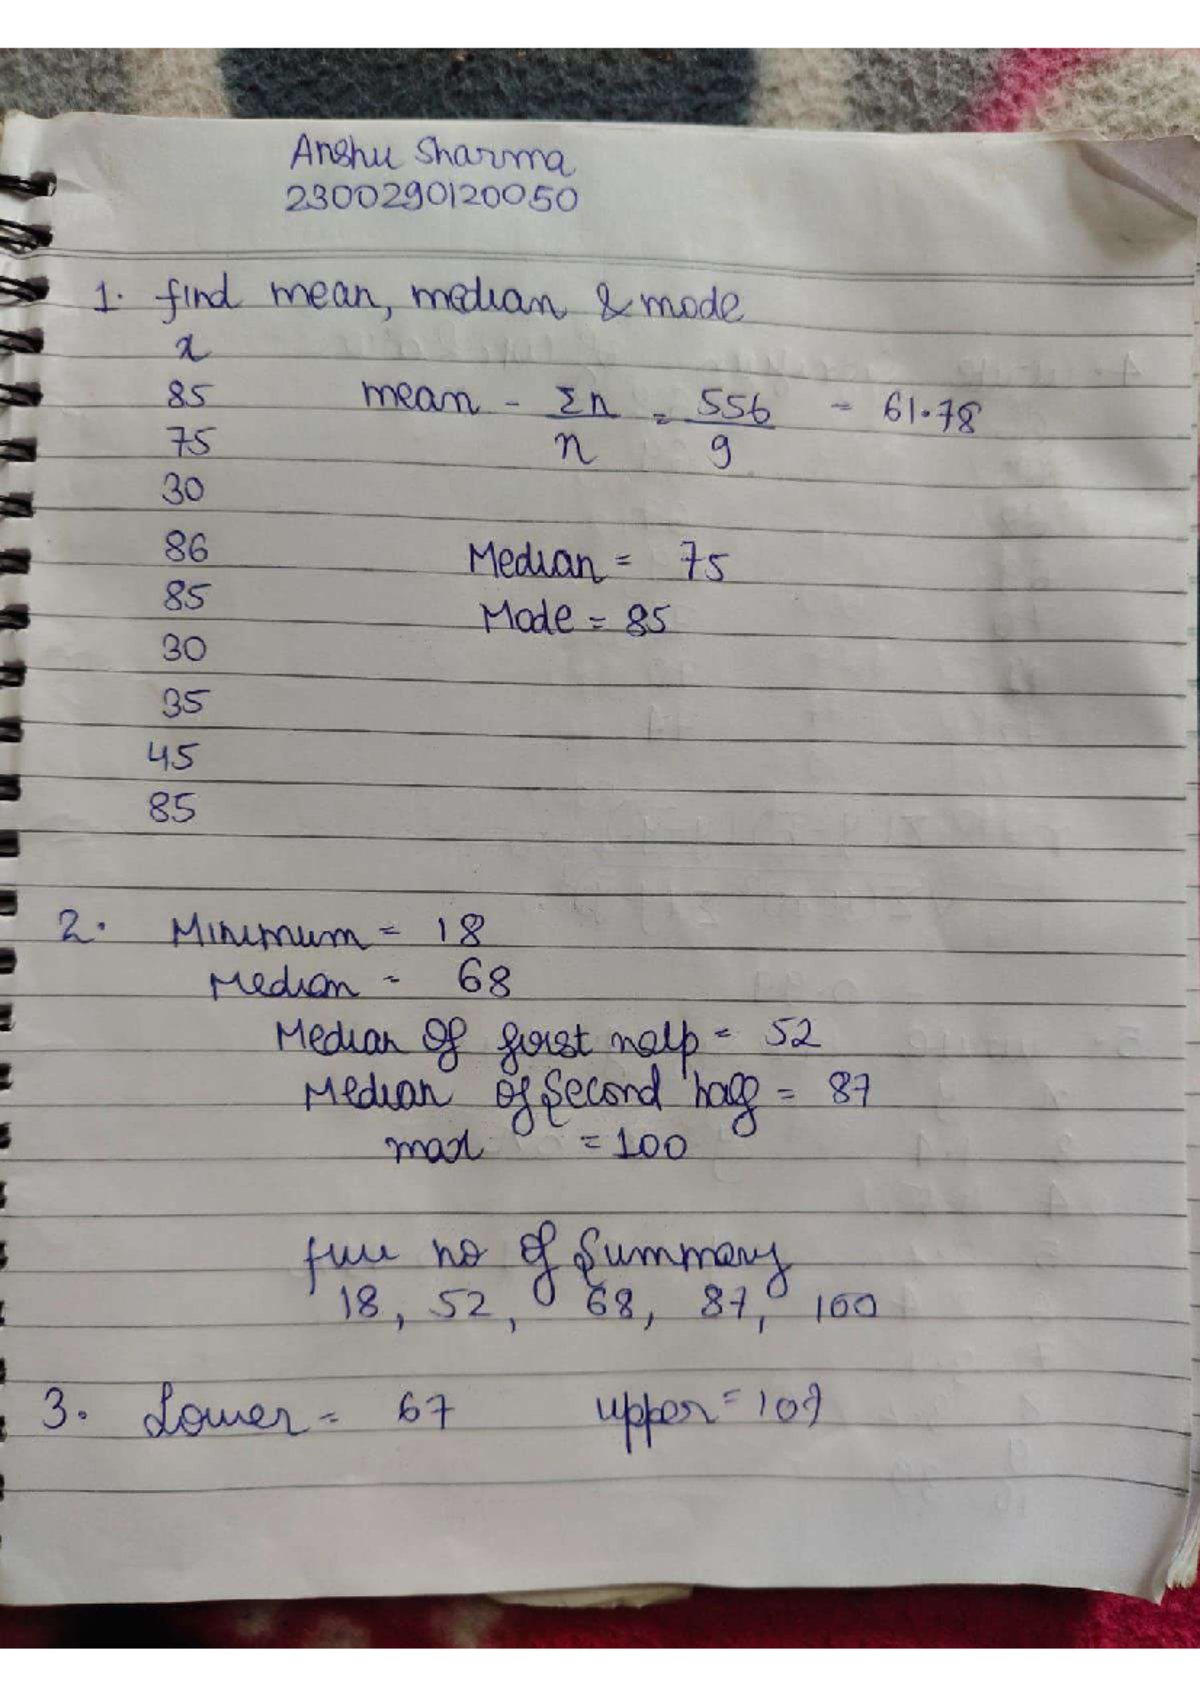 Anshu Sharma
2300290120050
1. find mean, median & mode
x
85 mean - Σn/n = 556/9 = 61.78
75
30
86 Median = 75
85 Mode = 85
30
35
45
85
2. Minimum = 18
Median = 68
Median of first half = 52
Median of Second half = 87
max = 100
five no of Summary
18, 52, 68, 87, 100
3. Lower = 67 upper = 107